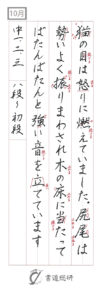 10月
猫の目は怒りに燃えていました。虎尾は
勢いよく振りまわされ木の床に当たって
ばたんばたんと強い音を立てています
中一二三 八段〜初段
書道総研